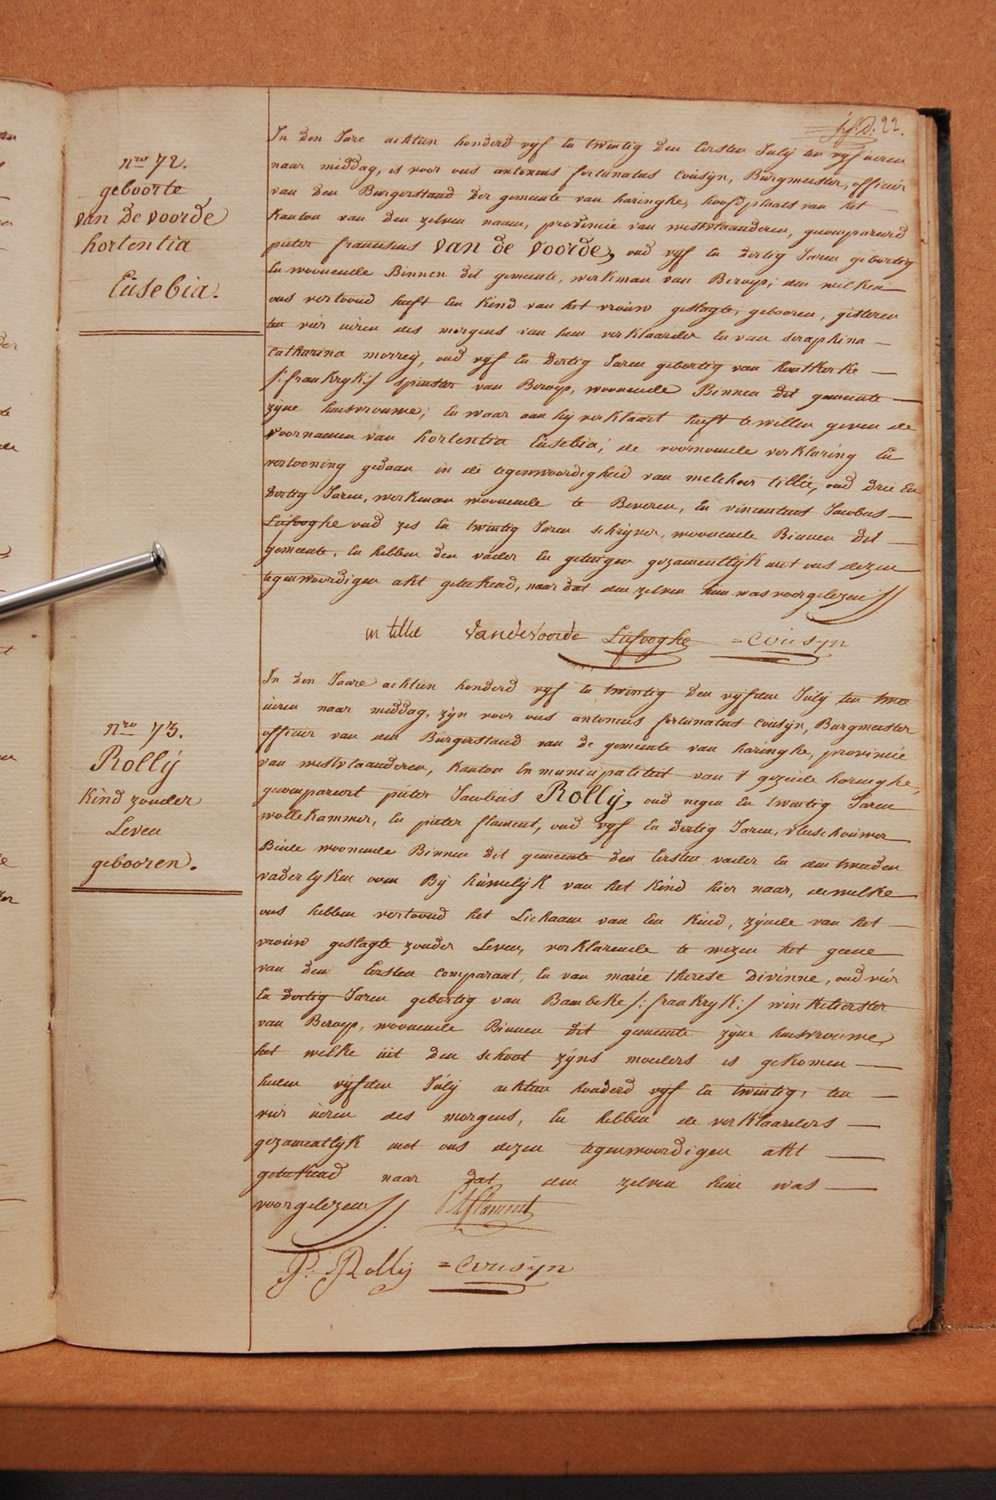 22.
nro 72.
geboorte
van de voorde
hortentia
Eusebia.
In den Jare achtien honderd vyf en twintig den Eersten July ten vyf ueren
naar middag, is voor ons antonius fortunatus Cousyn, Burgmeester, officier
van den Burgerstand der gemeente van haringhe, hoofdplaats van het
kanton van den zelven naam, provincie van westvlaanderen, gecompareerd
pieter franciscus van de voorde, oud vyf en dertig Jaren gebortig
en woonende Binnen dit gemeente, werkman van Beroep; den welken
ons vertoond heeft een kind van het vrouw geslagte, gebooren, gisteren
ten vier uiren des morgens van hem verklaarder en van seraphina
Catharina morreij, oud vyf en dertig Jaren gebortig van houtkerke
/: frankryk :/ spinster van Beroep, woonende Binnen dit gemeente
zyne huisvrouwe; en waar aan hy verklaart heeft te willen geven de
Voornamen van hortentia Eusebia; de voornoemde verklaring en
vertooning gedaan in de tegenwoordigheid van melchior tillie, oud drie en
dertig Jaren, werkman woonende te Beveren, en vincentius Jacobus
Liefooghe oud zes en twintig Jaren schryver, woonende Binnen dit
gemeente, en hebben den vader en getuigen gezamentlyk met ons dezen
tegenwoordigen akt geteekend, naar dat den zelven hun was voorgelezen //
m tillie Vandevoorde Liefooghe = Cousyn
nro 73.
Rollÿ
kind zonder
Leven
gebooren.
In den Jaare achtien honderd vyf en twintig den vyfden July ten twee
uiren naar middag, zyn voor ons antonius fortunatus Cousyn, Burgmeester
officier van den Burgerstand van de gemeente van haringhe, provincie
van westvlaanderen, kanton en municipaliteit van t gezeide haringhe,
gecompareert pieter Jacobus Rollÿ, oud negen en twintig Jaren
wollekammer, en pieter flament, oud vyf en dertig Jaren, vleeschouwer
Beide woonende Binnen dit gemeente den Eersten vader en den tweeden
vaderlyken oom By huwelyk van het kind hier naar, dewelke
ons hebben vertoond het Lichaam van een kind, zynde van het
vrouw geslagte zonder Leven, verklarende te wezen het geene
van den Eersten Comparant, en van marie therese Divinne, oud vier
en dertig Jaren gebortig van Bambeke /: frankryk :/ winkelierster
van Beroep, woonende Binnen dit gemeente zyne huisvrouwe,
het welke uit den schoot zyns moeders is gekomen
heden vyfden July achtien honderd vyf en twintig, ten
vier uiren des morgens, en hebben de verklaarders
gezamentlyk met ons dezen tegenwoordigen akt
geteekend naar dat den zelven hun was
voorgelezen // flament
P: J Rollij = Cousyn